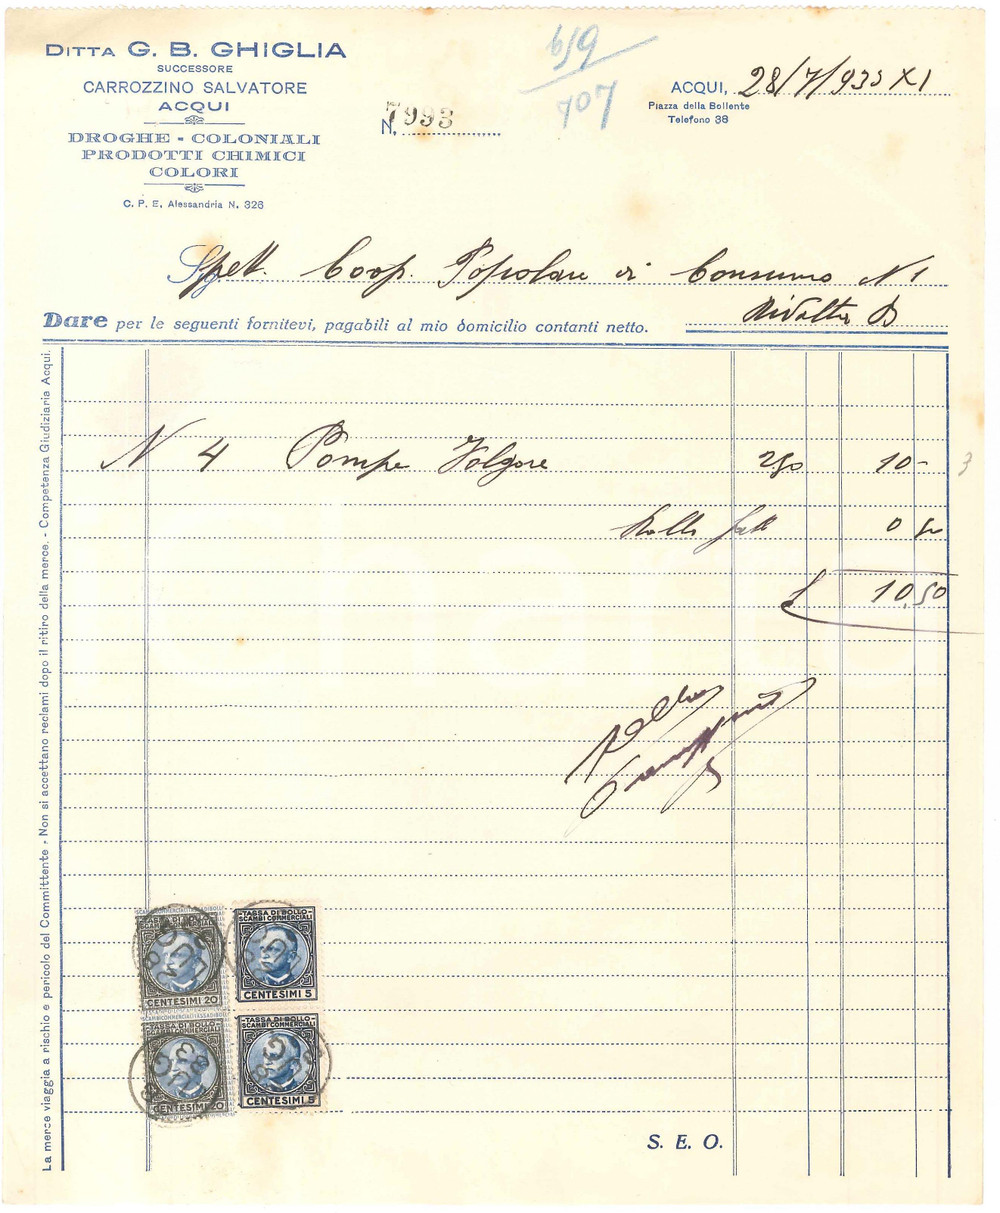 DITTA G. B. GHIGLIA
SUCCESSORE
CARROZZINO SALVATORE
ACQUI
DROGHE - COLONIALI
PRODOTTI CHIMICI
COLORI
C. P. E. Alessandria N. 326
N. 7993
619
707
ACQUI, 28/7/933 XI
Piazza della Bollente
Telefono 38
Spett. Coop. Popolare di Consumo N 1
Rivalta B
Dare per le seguenti fornitevi, pagabili al mio domicilio contanti netto.
La merce viaggia a rischio e pericolo del Committente - Non si accettano reclami dopo il ritiro della merce. - Competenza Giudiziaria Acqui.
N 4 Pompe Folgore 2,50 10- 3
Bollo fatt 0 50
£ 10,50
TASSA DI BOLLO
SCAMBI COMMERCIALI
CENTESIMI 20
TASSA DI BOLLO
SCAMBI COMMERCIALI
CENTESIMI 5
TASSA DI BOLLO
SCAMBI COMMERCIALI
CENTESIMI 20
TASSA DI BOLLO
SCAMBI COMMERCIALI
CENTESIMI 5
S. E. O.